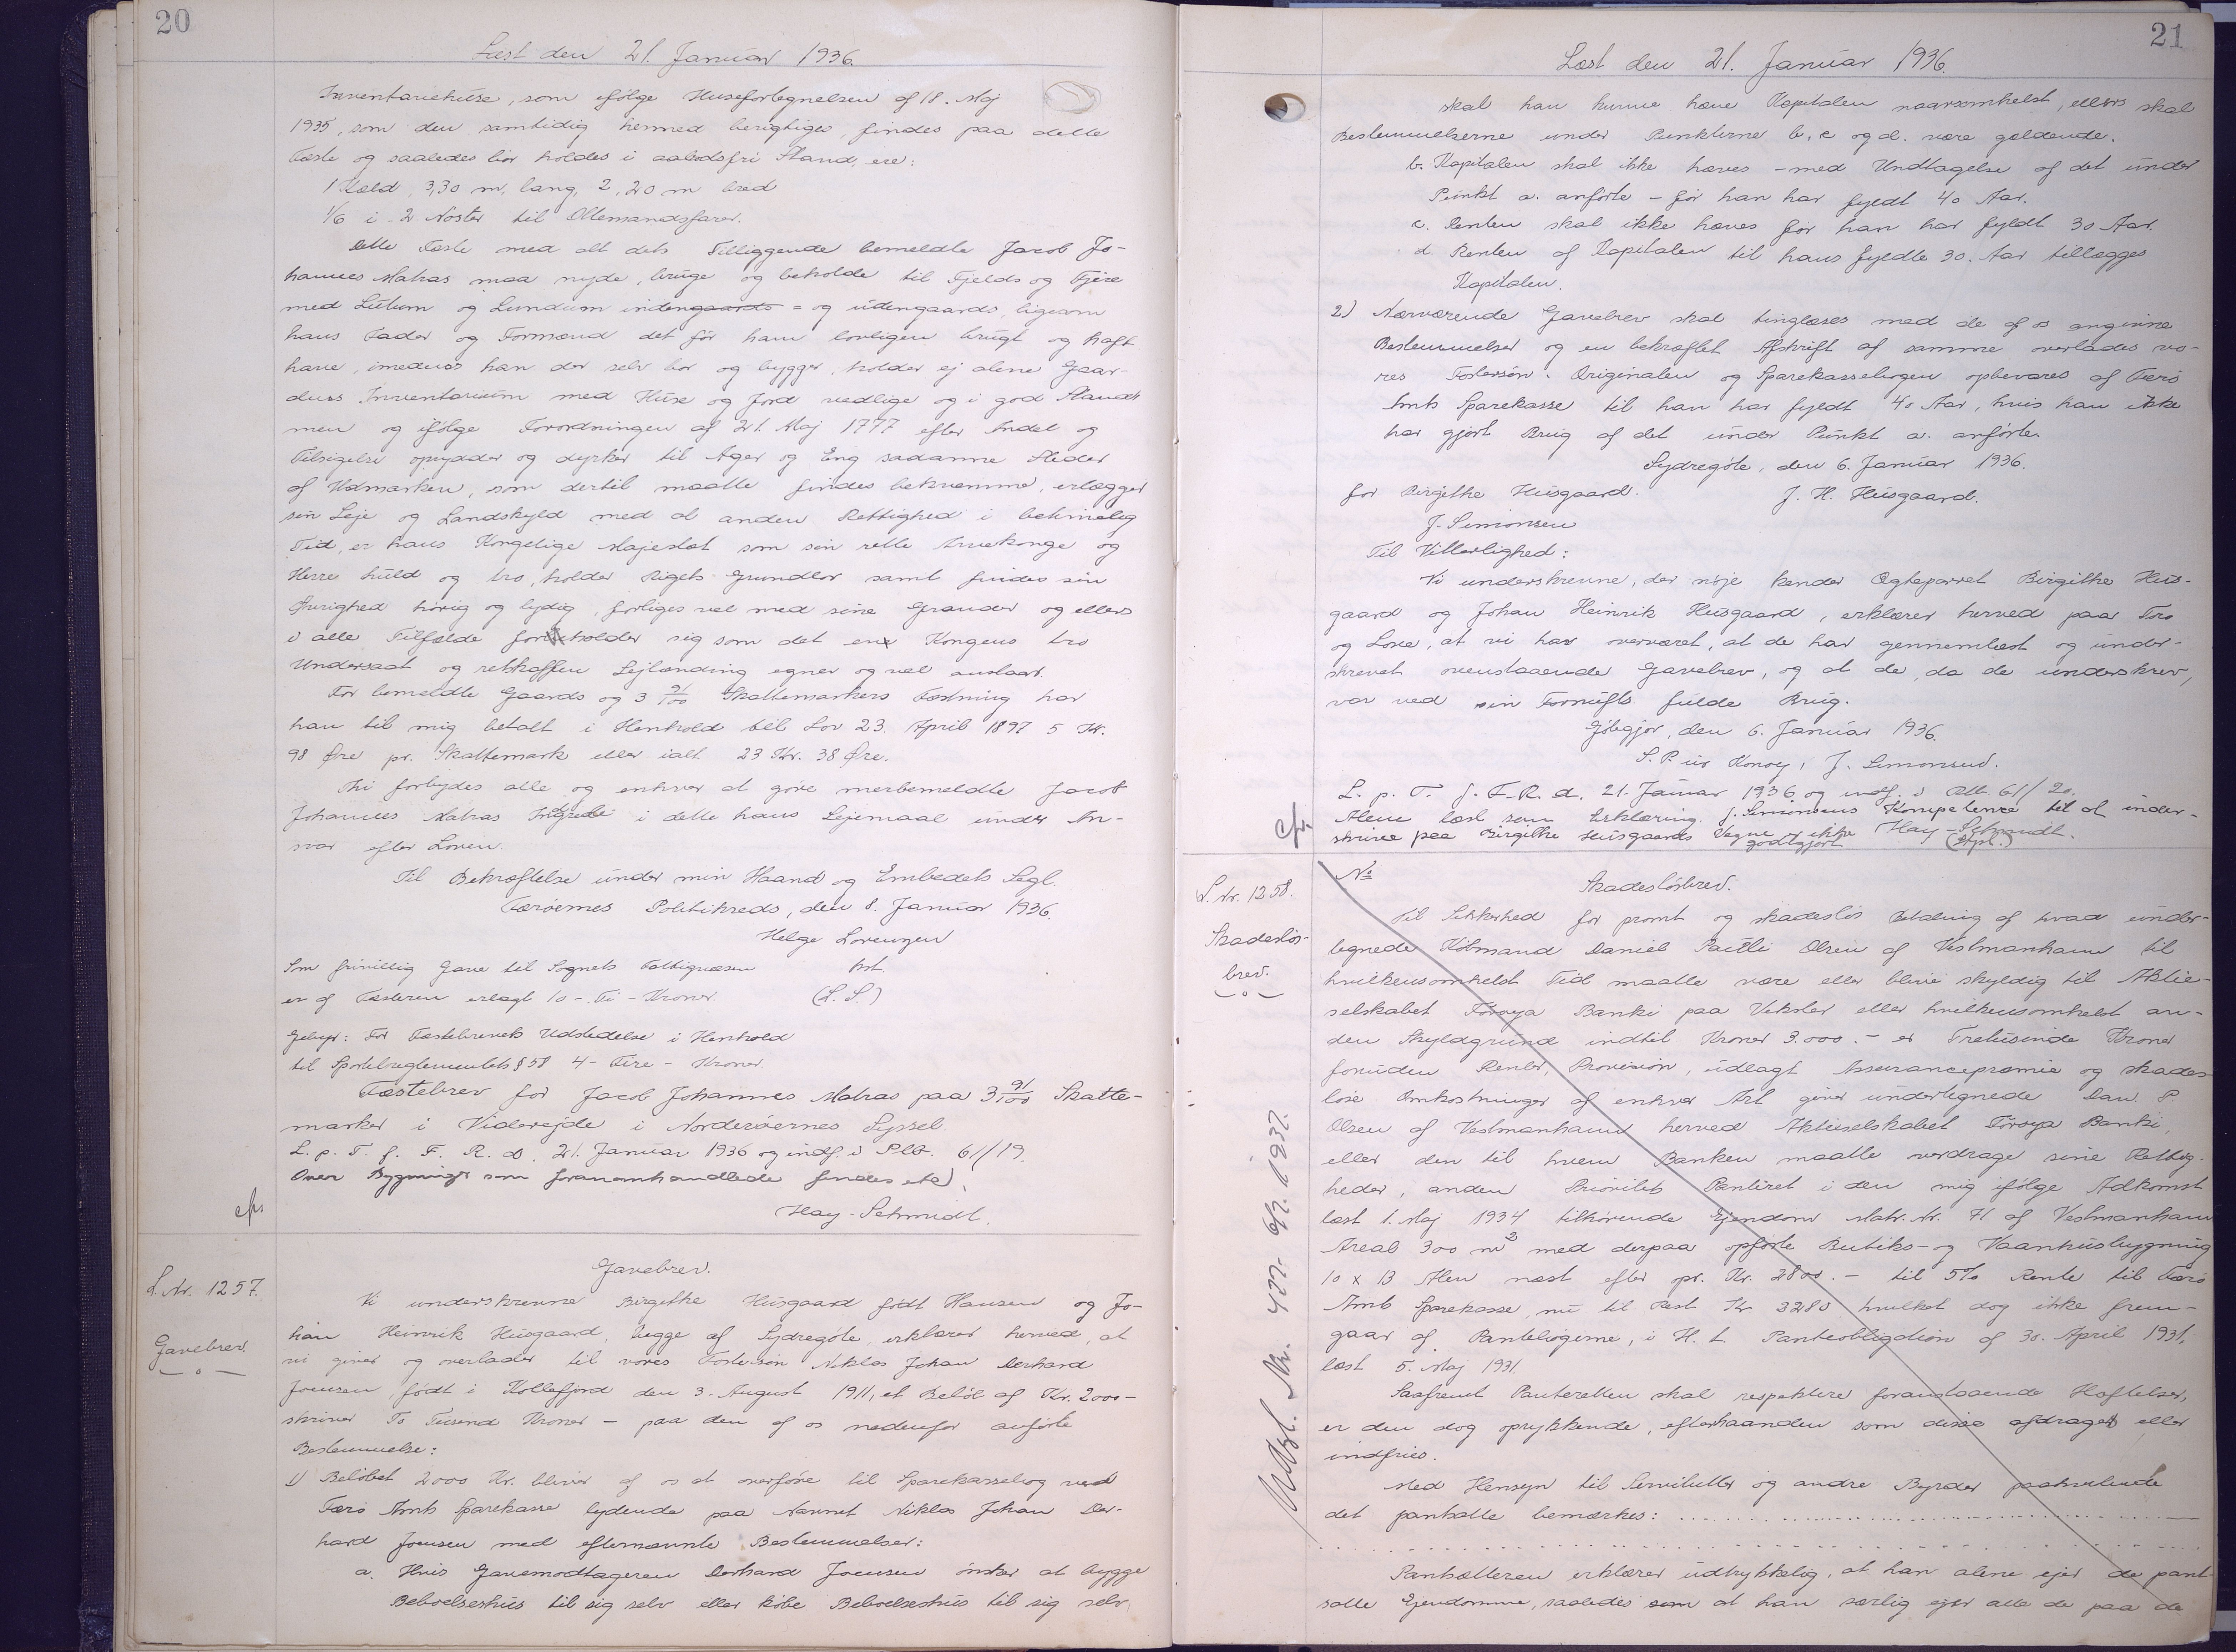 20
Læst den 21. Januar 1936.
Inventariehuse, som ifölge Husefortegnelsen af 18. Maj
1935, som den samtidig hermed berigtiges, findes paa dette
Fæste og saaledes bör holdes i aabodsfri Stand, ere:
1 Kæld 3,30 m. lang, 2,20 m bred
1/6 i 2 Nöster til Ottemandsfarer.
Dette Fæste med alt dets Tilliggende bemeldte Jacob Jo-
hannes Matras maa nyde, bruge og beholde til Fjelds og Fjære
med Lutum og Lundum indengaards = og udengaards, ligesom
hans Fader og Formænd det för ham lovligen brugt og haft
have, imedens han der selv bor og bygger, holder ej alene Gaar-
dens Inventarium med Huse og Jord vedlige og i god Stand
men og ifölge Forordningen af 21. Maj 1777 efter Andel og
Tilsigelse oprydder og dyrker til Ager og Eng sadanne Steder
af Udmarken, som dertil maatte findes bekvemme, erlægger
sin Leje og Landskyld med al anden Rettighed i betimelig
Tid, er hans Kongelige Majestæt som sin rette Arvekonge og
Herre huld og tro, holder Rigets Grundlov samt findes sin
Øvrighed hörig og lydig, forliges vel med sine Grander og ellers
i alle Tilfælde forholder sig som det en Kongens tro
Undersaat og retskaffen Lejlænding egner og vel anstaar.
For bemeldte Gaards og 3 91/100 Skattemarkers Fæstning har
han til mig betalt i Henhold til Lov 23. April 1897 5 Kr.
98 Øre pr. Skattemark eller ialt 23 Kr. 38 Øre.
Thi forbydes alle og enhver at göre merbemeldte Jacob
Johannes Matras Indgreb i dette hans Lejemaal under An-
svar efter Loven.
Til Bekræftelse under min Haand og Embedets Segl.
Færöernes Politikreds, den 8. Januar 1936.
Helge Lorenzen
Som frivillig Gave til Sognets Fattigvæsen
kst.
er af Fæsteren erlagt 10 - Ti - Kroner.
(L. S.)
Gebyr: For Fæstebrevets Udstedelse i Henhold
til Sportelreglementets § 58 4 - Fire - Kroner.
Fæstebrev for Jacob Johannes Matras paa 3 91/100 Skatte-
marker i Viderejde i Norderöernes Syssel.
L. p. T. f. F. R. d. 21. Januar 1936 og indf. i Ptb. 61/19.
Over Bygninger som foranomhandlede findes etc.
Hay-Schmidt.
L. Nr. 1257.
Gavebrev.
Gavebrev.
Vi underskrevne Birgithe Husgaard födt Hansen og Jo-
han Heinrik Husgaard, begge af Sydregöte, erklærer herved, at
vi giver og overlader til vores Fostersön Niklas Johan Derhard
Joensen, födt i Kollefjord den 3. August 1911, et Belöb af Kr. 2000 -
skriver To Tusind Kroner - paa den af os nedenfor anförte
Bestemmelse:
1) Belöbet 2000 Kr. bliver af os at overföre til Sparekassebog ved
Færö Amts Sparekasse lydende paa Navnet Niklas Johan Der-
hard Joensen med efternævnte Bestemmelser:
a. Hvis Gavemodtageren Derhard Joensen önsker at bygge
Beboelseshus til sig selv eller köbe Beboelseshus til sig selv
21
Læst den 21. Januar 1936.
skal han kunne hæve Kapitalen naarsomhelst, ellers skal
Bestemmelserne under Punkterne b, c og d. være gældende.
b. Kapitalen skal ikke hæves - med Undtagelse af det under
Punkt a. anförte - för han har fyldt 40 Aar.
c. Renten skal ikke hæves för han har fyldt 30 Aar.
d. Renten af Kapitalen til hans fyldte 30. Aar tillægges
Kapitalen.
2) Nærværende Gavebrev skal tinglæses med de af os angivne
Bestemmelser og en bekræftet Afskrift af samme overlades vo-
res Fostersön. Originalen og Sparekassebogen opbevares af Færö
Amts Sparekasse til han har fyldt 40 Aar, hvis han ikke
har gjort Brug af det under Punkt a. anförte.
Sydregöte, den 6. Januar 1936.
for Birgithe Husgaard.
J. H. Husgaard.
J. Simonsen
Til Vitterlighed:
Vi underskrevne, der nöje kender Ægteparret Birgithe Hus-
gaard og Johan Heinrik Husgaard, erklærer herved paa Tro
og Love, at vi har overværet, at de har gennemlæst og under-
skrevet ovenstaaende Gavebrev, og at de, da de underskrev,
var ved sin Fornufts fulde Brug.
Götegjov, den 6. Januar 1936.
S. P. úr Konoy, J. Simonsen.
L. p. T. f. F. R. d. 21. Januar 1936 og indf. i Ptb. 61/20.
Alene læst som Erklæring. J. Simonsens Kompetence til at under-
skrive paa Birgithe Husgaards Vegne er ikke godtgjort
Hay-Schmidt.
L. Nr. 1258.
Skadeslös-
brev.
No
Skadeslösbrev.
Til Sikkerhed for promt og skadeslös Betaling af hvad under-
tegnede Köbmand Daniel Pauli Olsen af Vestmanhavn til
hvilkensomhelst Tid maatte være eller blive skyldig til Aktie-
selskabet Föroya Banki paa Veksler eller hvilkensomhelst an-
den Skyldgrund indtil Kroner 3.000.- er Tretusinde Kroner
foruden Renter, Provision, udlagt Assurancepræmie og skades-
löse Omkostninger af enhver Art giver undertegnede Dan. P.
Olsen af Vestmanhavn herved Aktieselskabet Föroya Banki,
eller den til hvem Banken maatte overdrage sine Rettig-
heder, anden Prioritets Panteret i den mig ifölge Adkomst
læst 1. Maj 1934 tilhörende Ejendom Matr. Nr. 71 af Vestmanhavn
Areal 300 m² med derpaa opförte Butiks- og Vaanhusbygning
10 x 13 Alen næst efter opr. Kr. 2800.- til 5% Rente til Færö
Amts Sparekasse, nu til Rest Kr 3280 hvilket dog ikke frem-
gaar af Pantebögerne, i H. t. Panteobligation af 30. April 1931,
læst 5. Maj 1931.
Saafremt Panteretten skal respektere foranstaaende Hæftelser,
er den dog oprykkende, efterhaanden som disse afdrages eller
indfries.
Med Hensyn til Servitutter og andre Byrder paahvilende
det pantsatte bemærkes: ..........
Pantsætteren erklærer udtrykkelig, at han alene ejer de pant-
satte Ejendomme, saaledes som at han særlig ejer alle de paa de